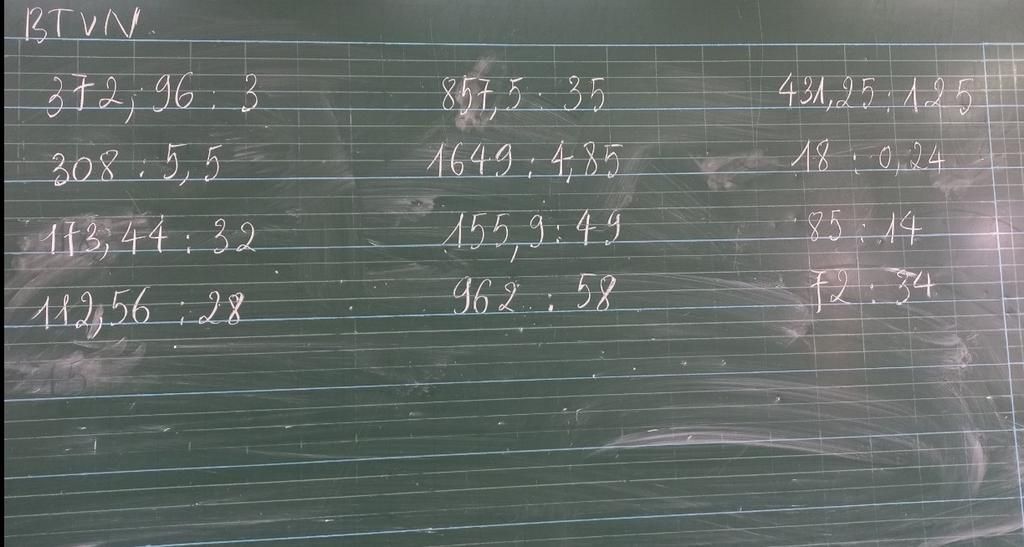 BTVN.
372,96 : 3 857,5 : 35 431,25 : 125
308 : 5,5 1649 : 4,85 18 : 0,24
173,44 : 32 155,9 : 49 85 : 14
112,56 : 28 962 : 58 72 : 34